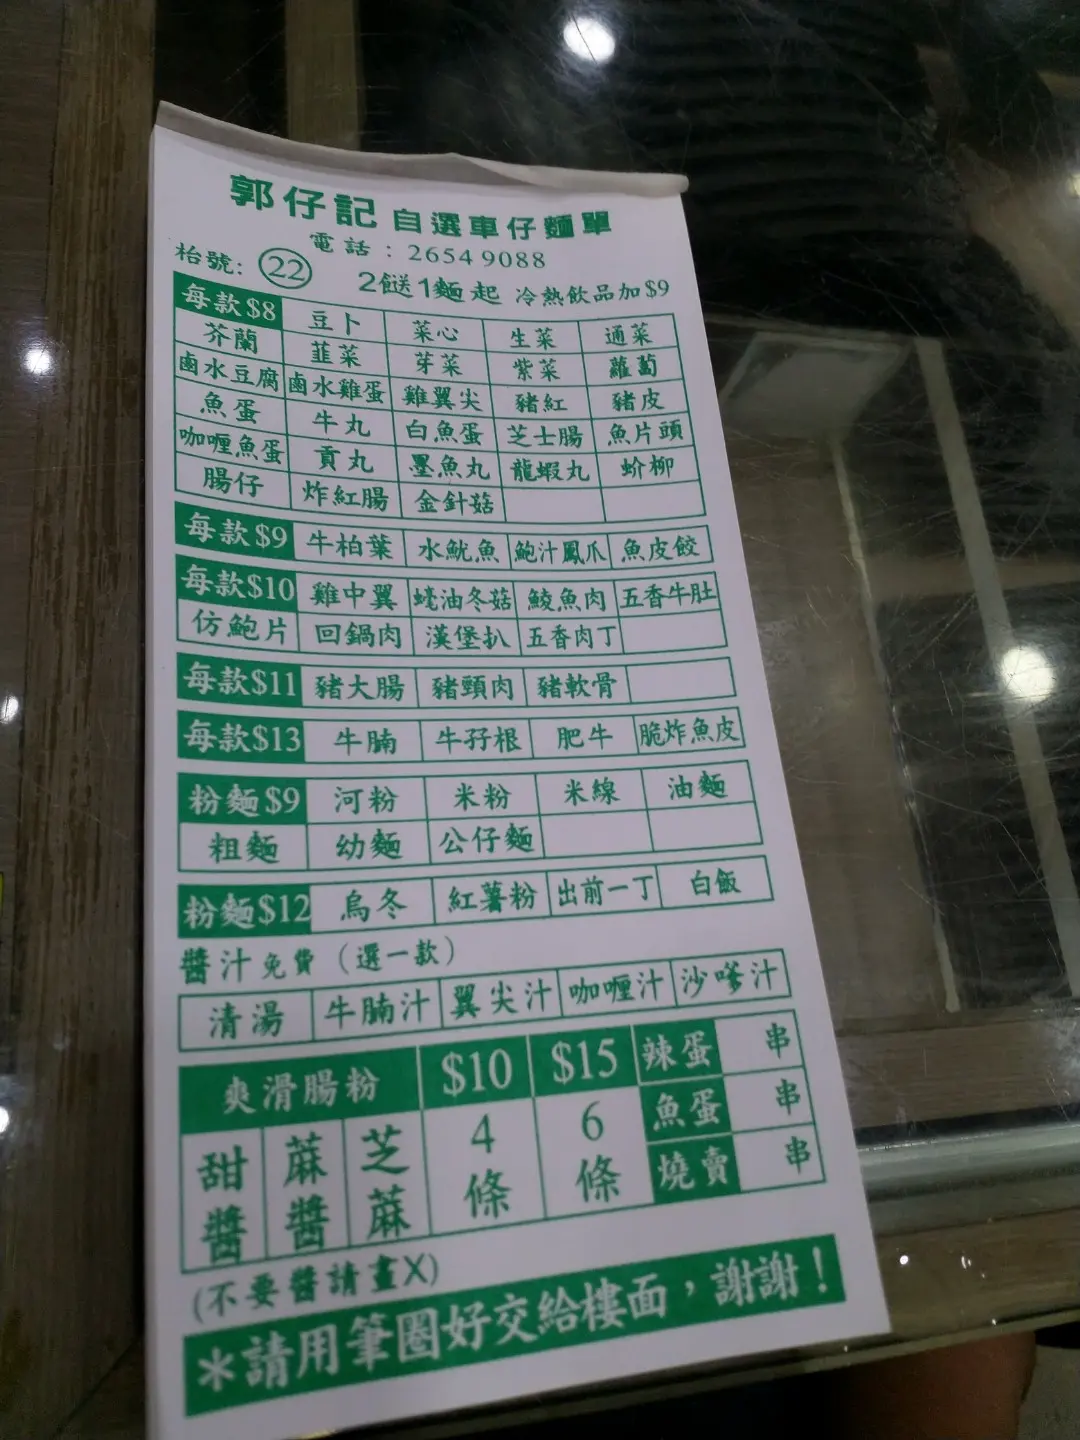 郭仔記 自選車仔麵單
電話：2654 9088
枱號: 22 2餸1麵起 冷熱飲品加$9
每款$8 豆卜 菜心 生菜 通菜
芥蘭 韮菜 芽菜 紫菜 蘿蔔
鹵水豆腐 鹵水雞蛋 雞翼尖 豬紅 豬皮
魚蛋 牛丸 白魚蛋 芝士腸 魚片頭
咖喱魚蛋 貢丸 墨魚丸 龍蝦丸 蚧柳
腸仔 炸紅腸 金針菇
每款$9 牛柏葉 水魷魚 鮑汁鳳爪 魚皮餃
每款$10 雞中翼 蠔油冬菇 鯪魚肉 五香牛肚
仿鮑片 回鍋肉 漢堡扒 五香肉丁
每款$11 豬大腸 豬頸肉 豬軟骨
每款$13 牛腩 牛孖根 肥牛 脆炸魚皮
粉麵$9 河粉 米粉 米線 油麵
粗麵 幼麵 公仔麵
粉麵$12 烏冬 紅薯粉 出前一丁 白飯
醬汁免費（選一款）
清湯 牛腩汁 翼尖汁 咖喱汁 沙嗲汁
爽滑腸粉 $10 $15 辣蛋 串
甜醬 蔴醬 芝蔴 4條 6條 魚蛋 串
燒賣 串
(不要醬請畫X)
*請用筆圈好交給樓面，謝謝！